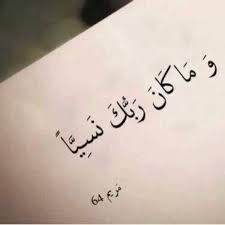 وَ مَا كَانَ رَبُّكَ نَسِيًّاً
مريم 64